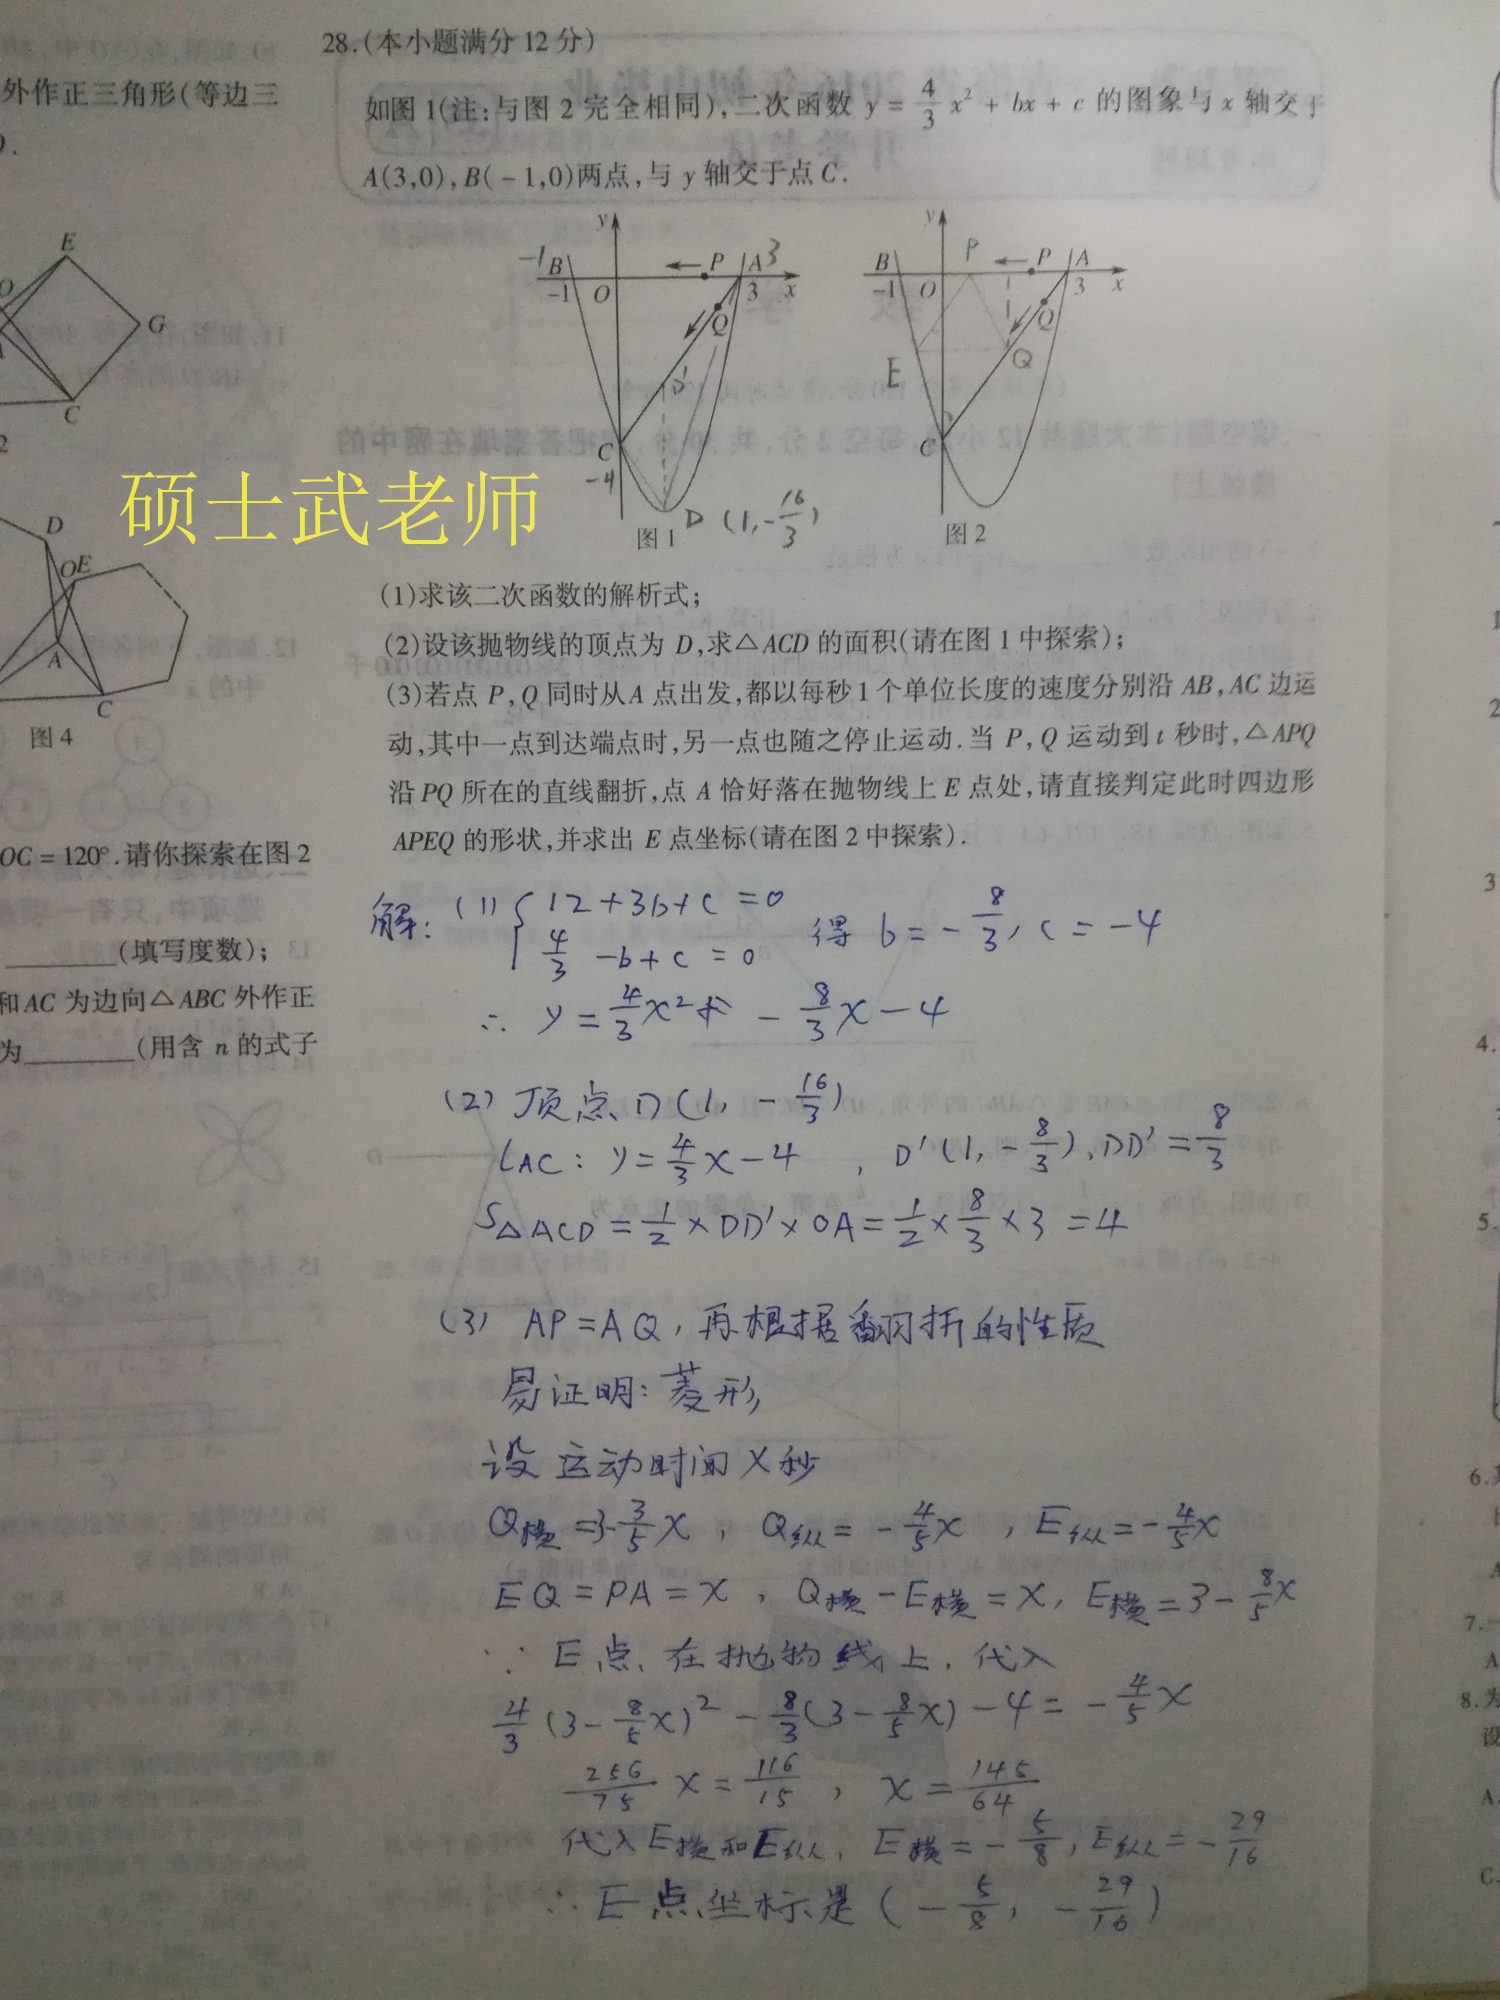 28.(本小题满分12分)
如图1(注:与图2完全相同),二次函数 y = 4/3 x² + bx + c 的图象与 x 轴交于
A(3,0),B(-1,0)两点,与 y 轴交于点C.
外作正三角形(等边三
E
G
C
2
D
OE
A
C
图4
y
-1 B
-1
O
P
A 3
3
x
Q
D'
C
-4
D (1,-16/3)
图1
y
P
B
-1
O
P
A
3
x
Q
E
Q
C
图2
硕士武老师
(1)求该二次函数的解析式;
(2)设该抛物线的顶点为 D,求△ACD 的面积(请在图1中探索);
(3)若点 P,Q 同时从A 点出发,都以每秒1个单位长度的速度分别沿 AB,AC 边运
动,其中一点到达端点时,另一点也随之停止运动.当 P,Q 运动到 t 秒时,△APQ
沿 PQ 所在的直线翻折,点 A 恰好落在抛物线上E 点处,请直接判定此时四边形
APEQ 的形状,并求出 E 点坐标(请在图2中探索).
OC=120°.请你探索在图2
(填写度数);
和AC 为边向△ABC 外作正
为________(用含 n 的式子
解: (1) { 12+3b+c=0
4/3 -b+c=0 得 b=-8/3, c=-4
∴ y=4/3x² - 8/3x-4
(2) 顶点D(1, -16/3)
LAC: y=4/3x-4 , D'(1, -8/3), DD'=8/3
S△ACD=1/2×DD'×OA=1/2×8/3×3=4
(3) AP=AQ, 再根据翻折的性质
易证明: 菱形,
设运动时间X秒
Q横=3-3/5x , Q纵=-4/5x , E纵=-4/5x
EQ=PA=x , Q横-E横=x, E横=3-8/5x
∵ E点在抛物线上, 代入
4/3(3-8/5x)²-8/3(3-8/5x)-4=-4/5x
256/75 x=116/15 , x=145/64
代入E横和E纵, E横=-5/8, E纵=-29/16
∴ E点坐标是(-5/8, -29/16)
4.
5.
7.
8.为
设
A.
C.